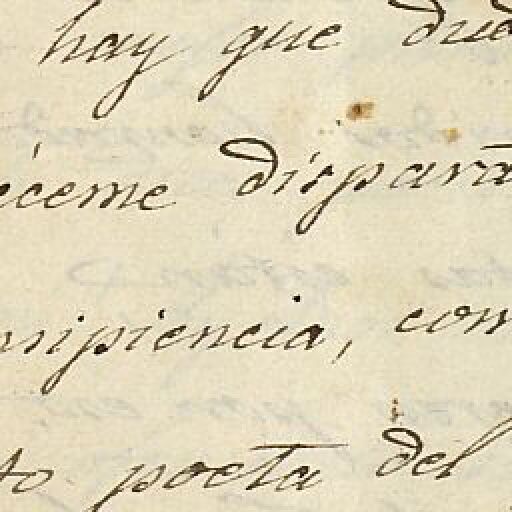 hay que dud
éceme dispara
nsipiencia, com
to poeta del